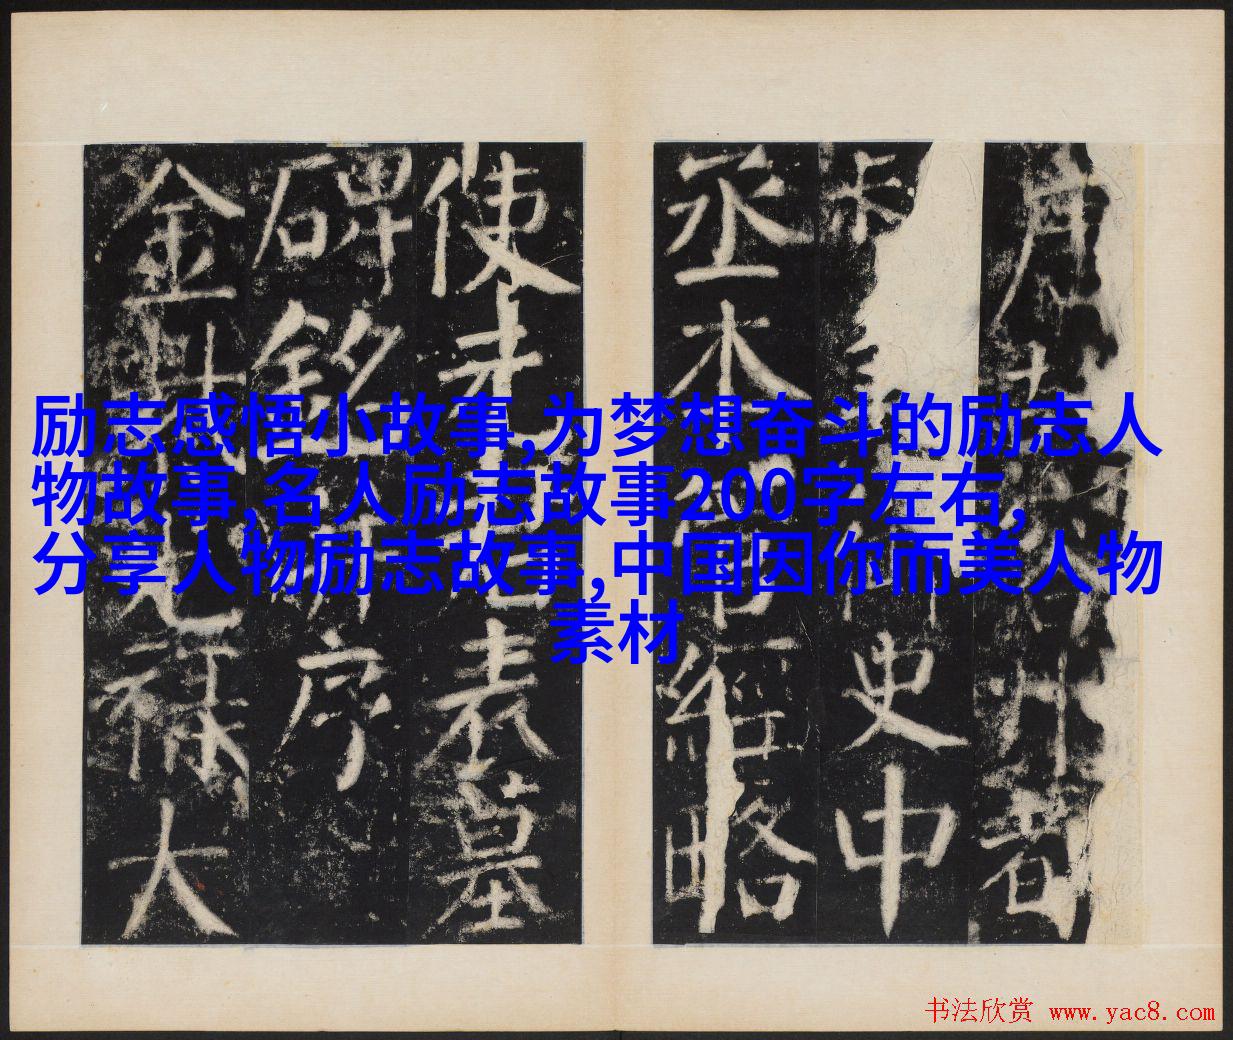 励志感悟小故事,为梦想奋斗的励志人
物故事,名人励志故事200字左右,
分享人物励志故事,中国因你而美人物
素材
史中
丞本經略
使表墓
碑銘序
金祿大
书法欣赏 www.yac8.com